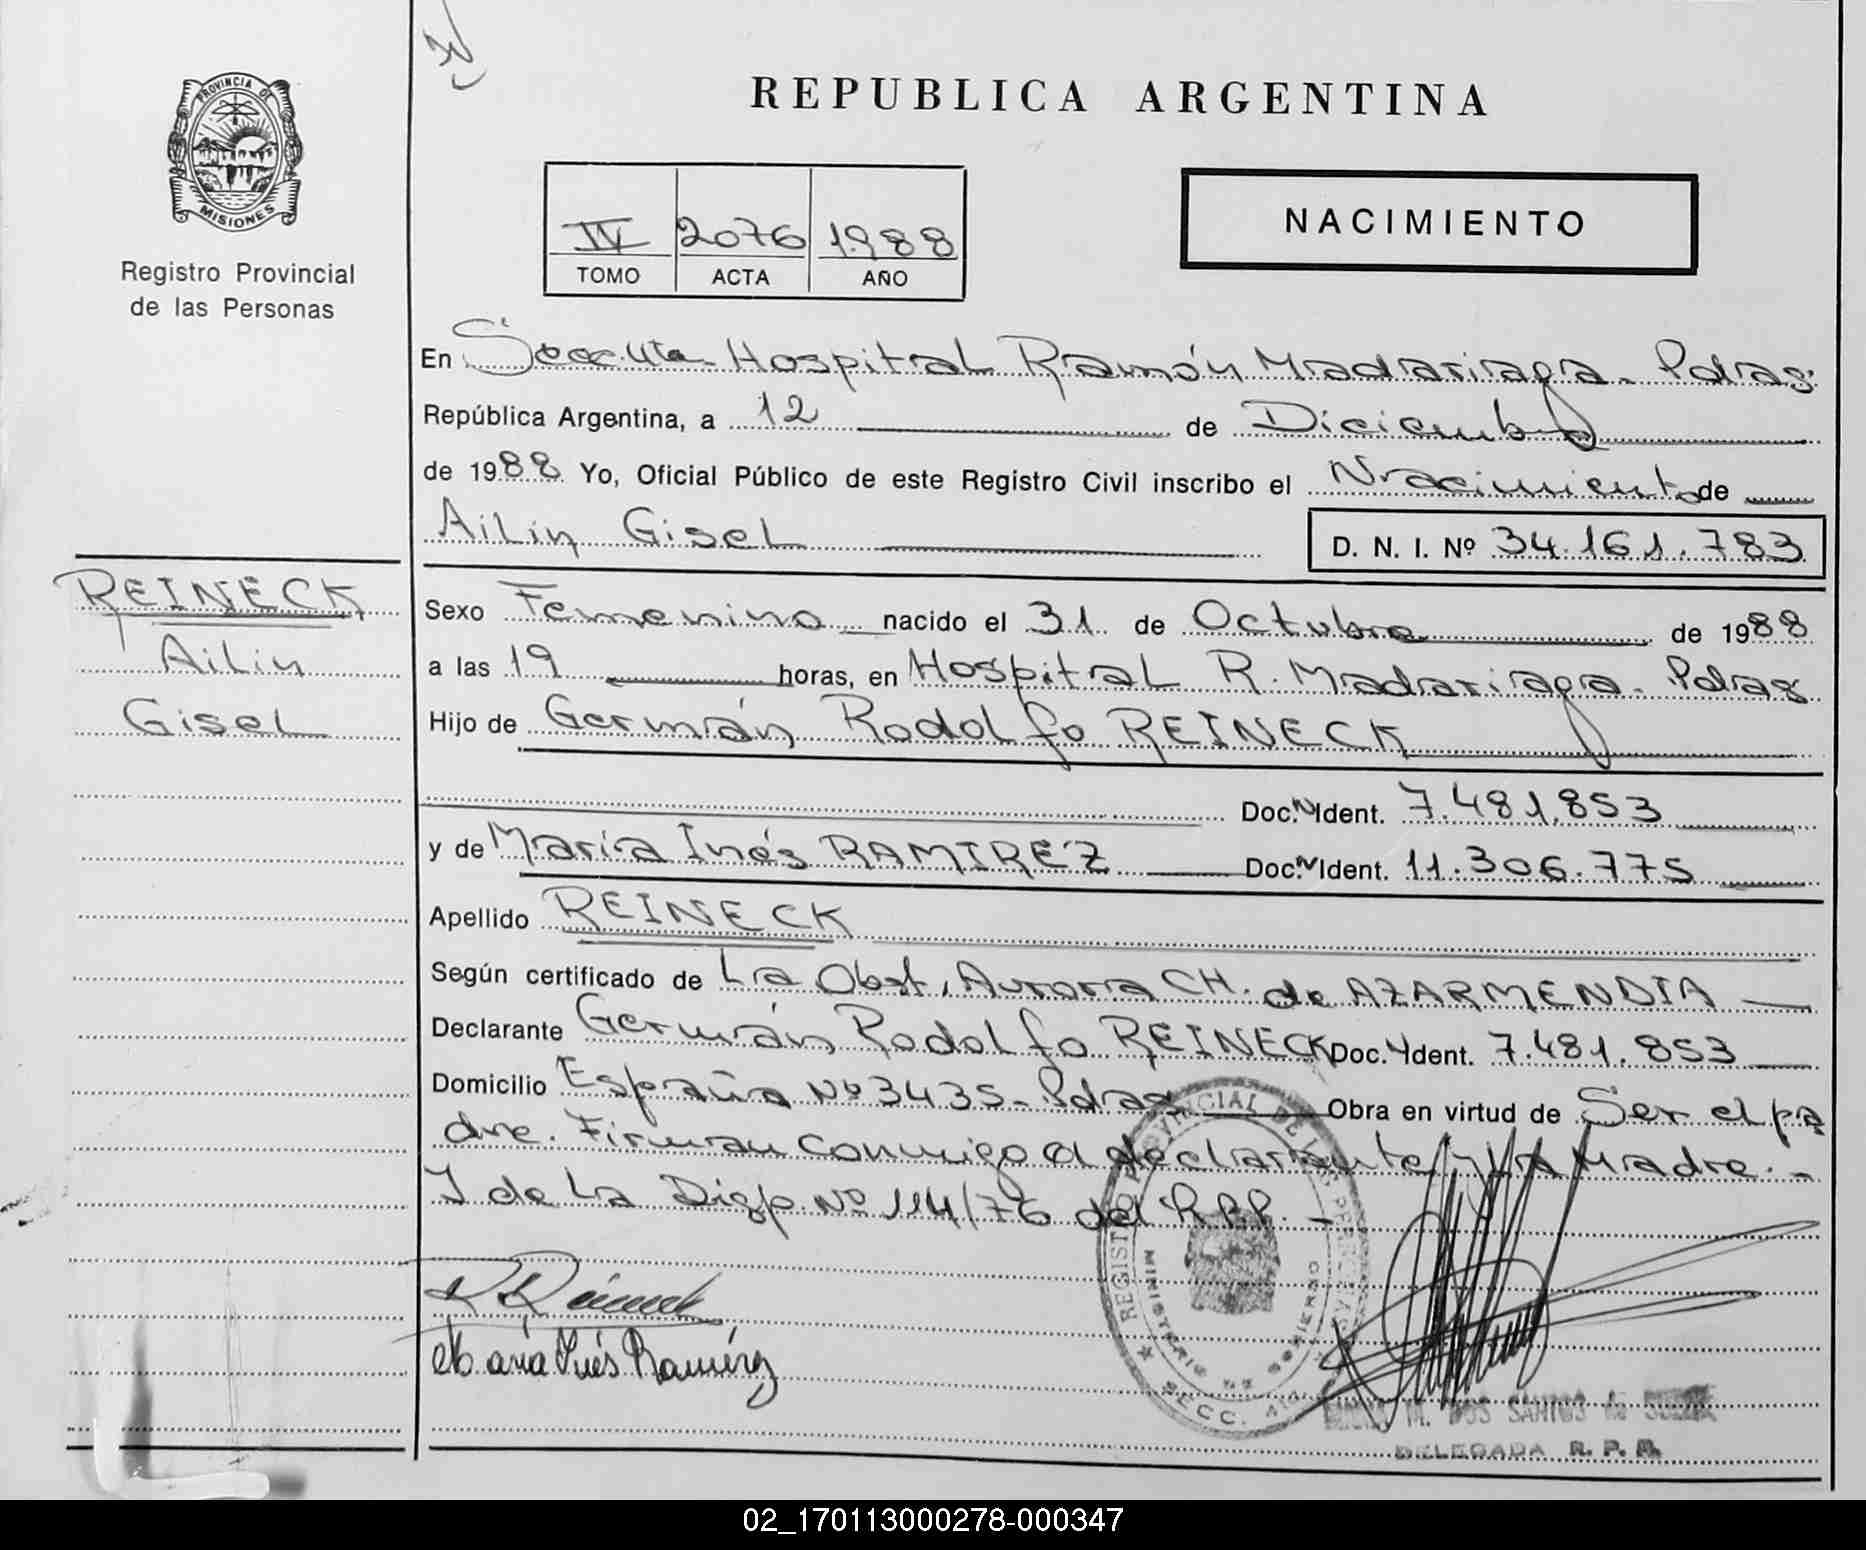 PROVINCIA DE
MISIONES
Registro Provincial
de las Personas
REPUBLICA ARGENTINA
IV 2076 1988
TOMO ACTA AÑO
NACIMIENTO
En Secc. 4ta. Hospital Ramón Madariaga. Pdas.
República Argentina, a 12 de Diciembre
de 1988 Yo, Oficial Público de este Registro Civil inscribo el Nacimiento de
Ailin Gisel D. N. I. Nº 34.161.783
REINECK
Ailin
Gisel
Sexo Femenino nacido el 31 de Octubre de 1988
a las 19 horas, en Hospital R. Madariaga. Pdas
Hijo de Germán Rodolfo REINECK
Doc. Ident. 7.481.853
y de María Inés RAMIREZ Doc. Ident. 11.306.775
Apellido REINECK
Según certificado de La Obst. Aurora CH. de AZARMENDIA
Declarante Germán Rodolfo REINECK Doc. Ident. 7.481.853
Domicilio España Nº 3435- Pdas Obra en virtud de Ser el pa
dre. Firman conmigo el declarante y La Madre. -
Y de La Disp. Nº 114/76 del R.P.P. -
María Inés Ramírez
REGISTRO PROVINCIAL DE LAS PERSONAS
MINISTERIO DE GOBIERNO
SECC. 4ta
M. DOS SANTOS de
DELEGADA R. P. P.
02_170113000278-000347